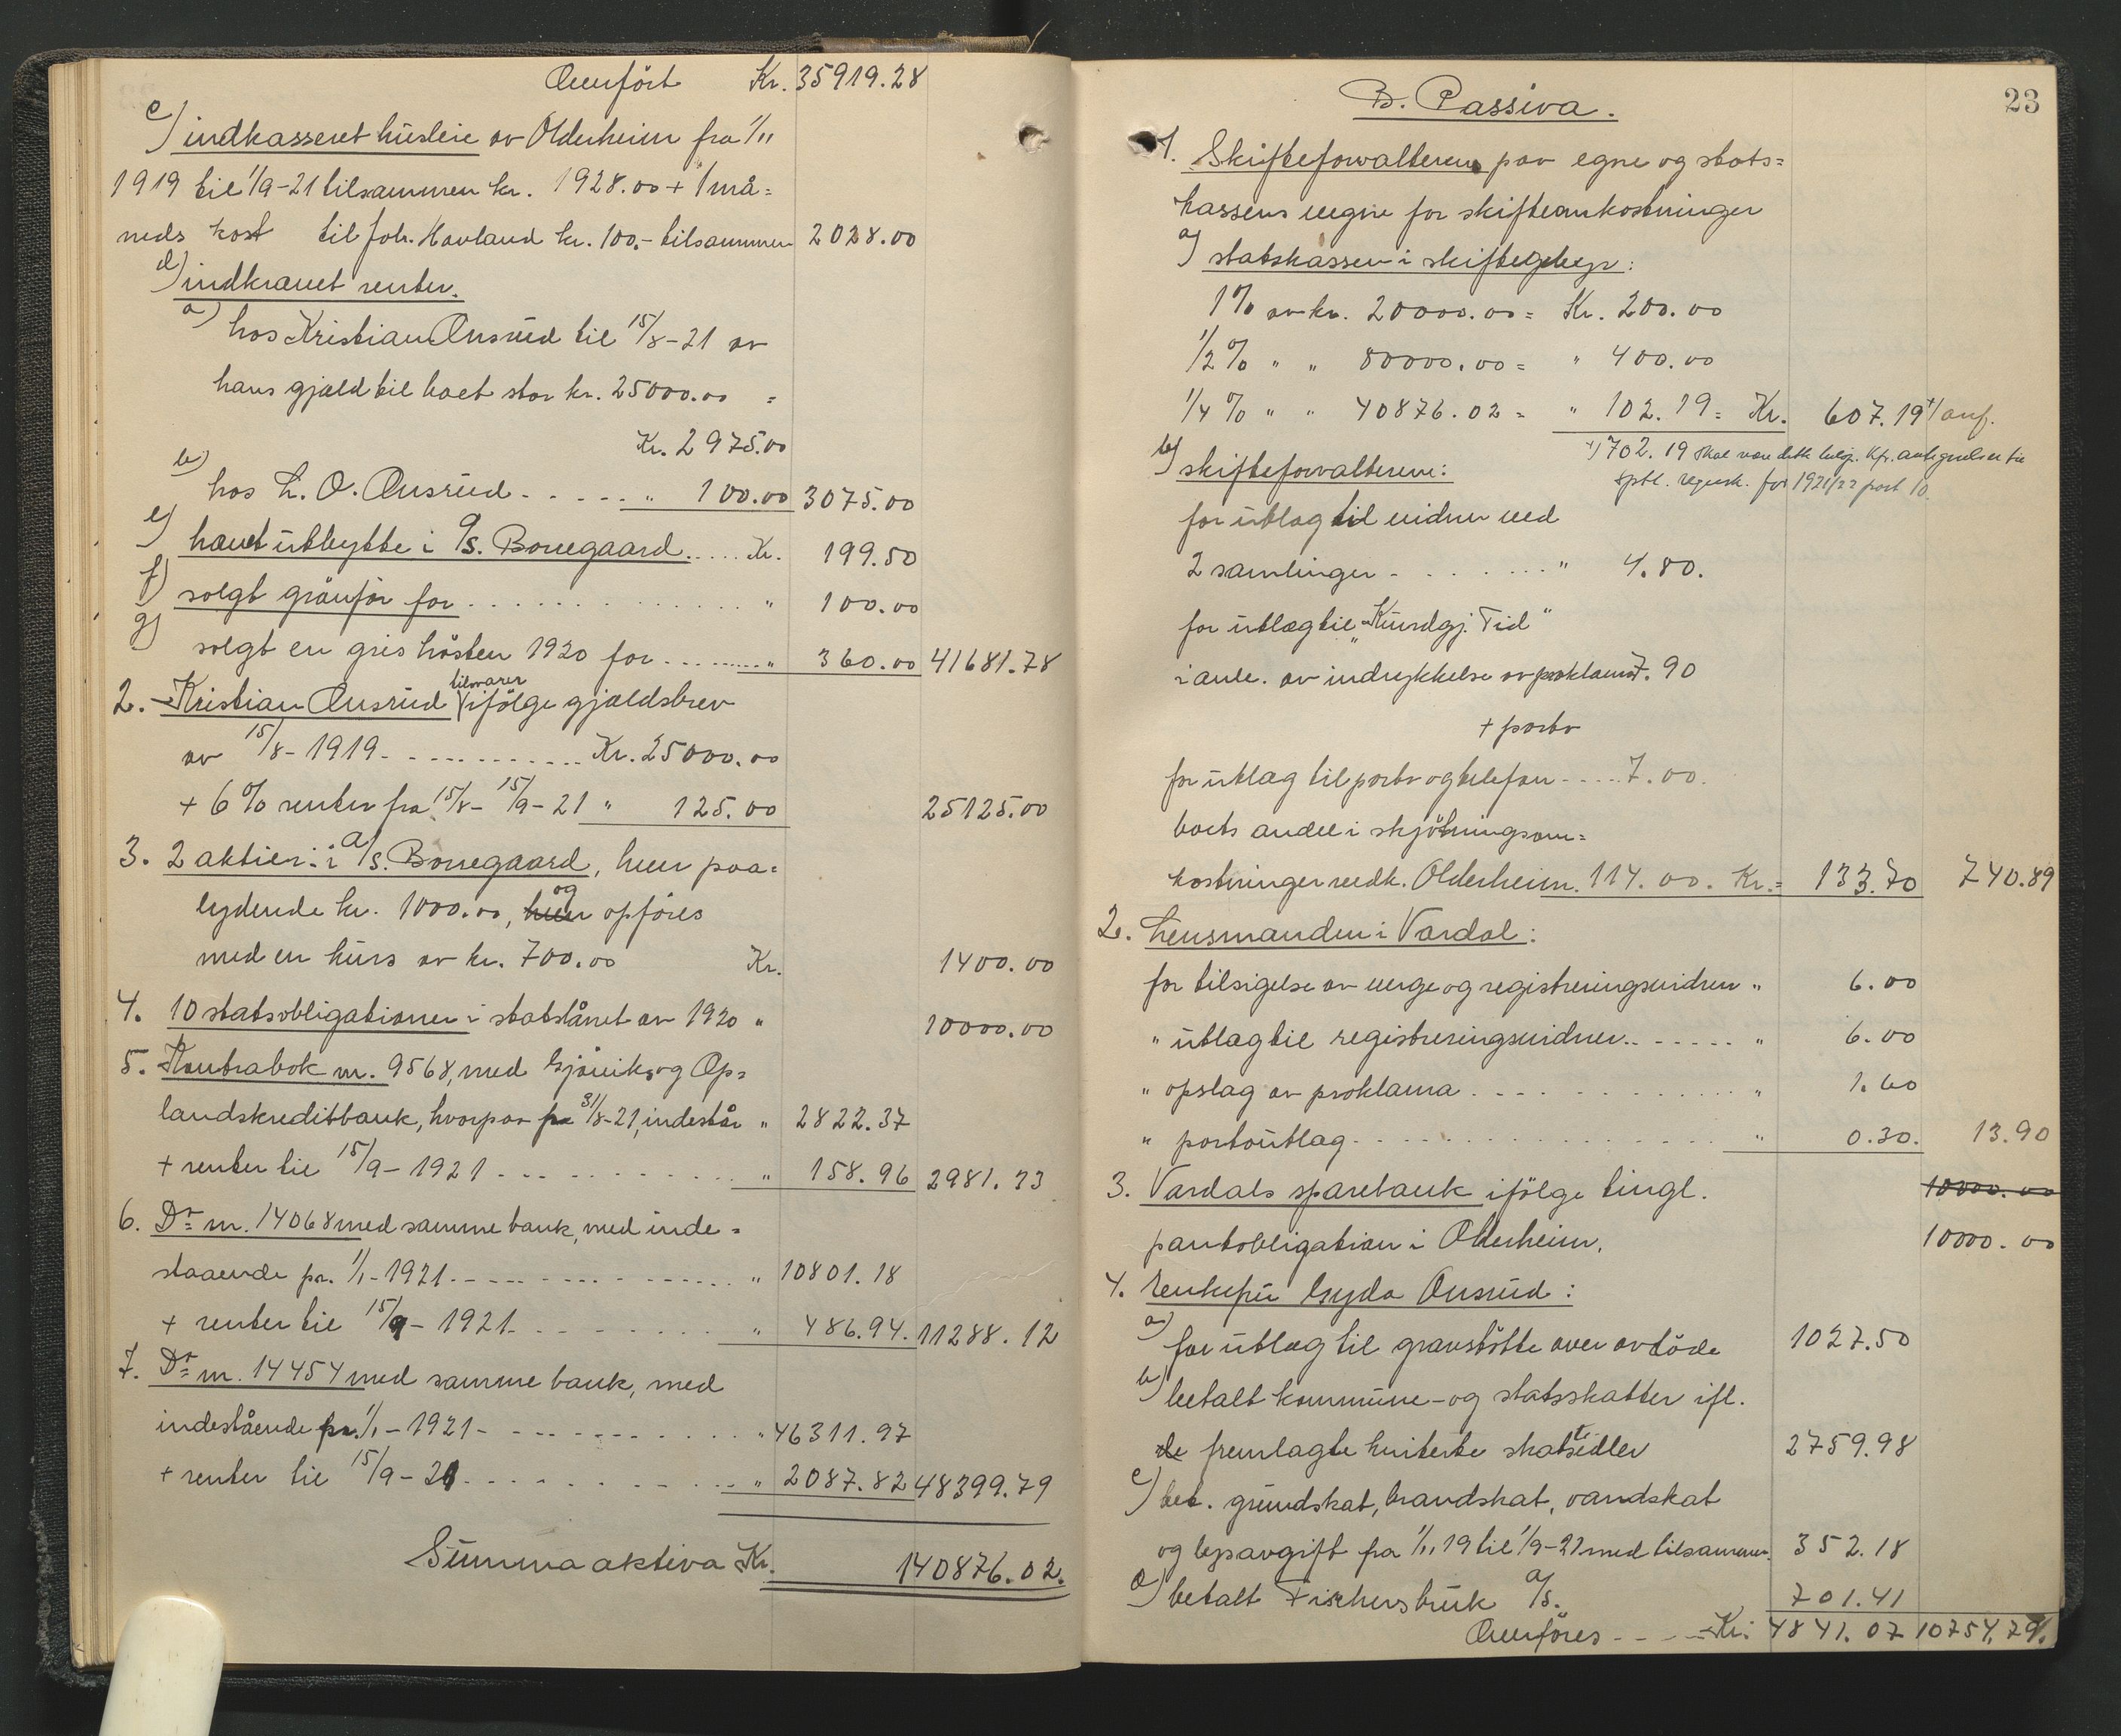 Overført Kr. 35919.28
c) indkasseret husleie av Olderheim fra 1/11
1919 til 1/9-21 tilsammen kr. 1928.00 + 1 må=
neds kost til Joh. Havland kr. 100.- tilsammen 2028.00
d) indkrævet renter.
a) hos Kristian Onsrud til 15/8-21 av
hans gjæld til boet stor kr. 25000.00 =
Kr. 2975.00
b) hos L. O. Onsrud - - - - - " 100.00 3075.00
e) hævet utbytte i A/S. Borregaard. .... Kr. 199.50
f) solgt grönfór for . . . . . . . . . . . . " 100.00
g) solgt en gris hösten 1920 for ........ " 360.00 41681.78
2. Kristian Onsrud tilsvarer ifölge gjældsbrev
av 15/8-1919 - . . . . . . . . . Kr. 25000.00
+ 6% renter fra 15/8 - 15/9-21 " 125.00 25125.00
3. 2 aktier i A/S. Borregaard, hver paa=
lydende kr. 1000.00, hver og opföres
med en kurs av kr. 700.00 Kr. 1400.00
4. 10 statsobligationer i statslånet av 1920 " 10000.00
5. Kontrabok nr. 9568, med Gjövik og Op=
landskreditbank, hvorpaa pr 31/8-21, indestår " 2822.37
+ renter til 15/9-1921 - - - . . . . . . " 158.96 2981.33
6. Do nr. 14068 med samme bank, med inde=
staaende pr. 1/1-1921. - - - - . . . . . " 10801.18
+ renter til 15/9-1921. . . . . . . . " 486.94. 11288.12
7. Do nr. 14454 med samme bank, med
indestående pr. 1/1-1921 - - - - . . . . " 46311.97
+ renter til 15/9-21. . . . . . . . . . " 2087.82 48399.79
Summa aktiva Kr. 140876.02.
23
B. Passiva.
1. Skifteforvalteren paa egne og stats=
kassens vegne for skifteomkostninger
a) statskassen i skiftegebyr:
1% av kr. 20000.00 = Kr. 200.00
1/2% " " 80000.00 = " 400.00
1/4% " " 40876.02 = " 102.19 = Kr. 607.19 +/ anf.
+) 702.19 skal være dette belöp. Kfr. antegnelser til
sptl. regnsk. for 1921/22 post 10.
b) skifteforvalteren:
for utlæg til vidner ved
2 samlinger - . . . . . . . " 4.80.
for utlæg til „Kundgj. Tid"
i anl. av indrykkelse av proklama 7.90
+ porto
for utlæg til porto og telefon - . . . 7.00.
boets andel i skjötningsom=
kostninger vedk. Olderheim. 114.00. Kr. = 133.70 740.89
2. Lensmanden i Vardal:
for tilsigelse av verge og registreringsvidner " 6.00
" utlæg til registreringsvidner. . - - - - . " 6.00
" opslag av proklama . . . . . . . . . . . " 1.60
" portoutlæg . . . . . . . . . . . . . . . " 0.30. 13.90
3. Vardals sparebank ifölge tingl. 10000.00
pantobligation i Olderheim. 10000.00
4. Enkefru Gyda Onsrud:
a) for utlæg til gravstötte over avdöde 1027.50
b) betalt kommune- og statsskatter ifl.
de fremlagte kviterte skatsedler 2759.98
c) bet. grundskat, brandskat, vandskat
og lysavgift fra 1/11 19 til 1/9-21 med tilsammen. 352.18
d) betalt Fischers bruk A/S. 701.41
Overföres - - - - - Kr. 4841.07 10754.79.